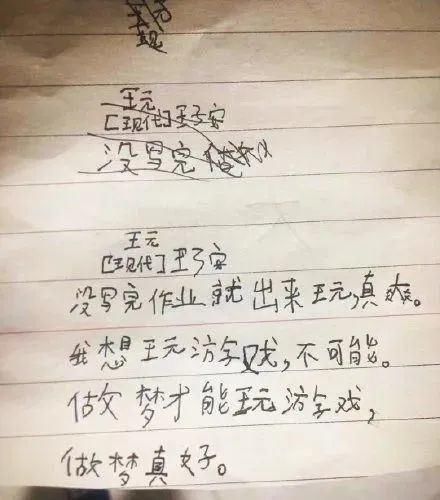 玩
[现代]王子安
没写完
玩
[现代]王子安
没写完作业就出来玩,真爽。
我想玩游戏,不可能。
做梦才能玩游戏,
做梦真好。